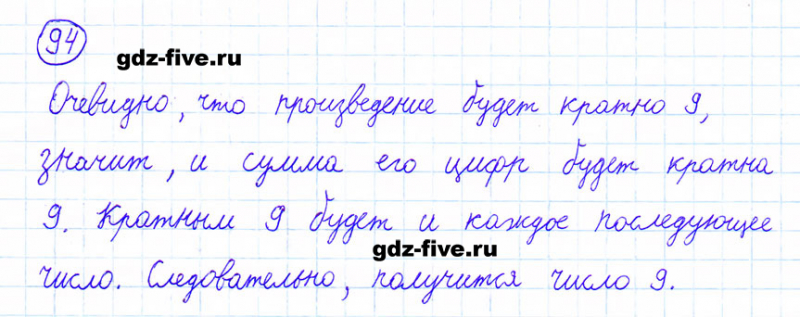 94
gdz-five.ru
Очевидно, что произведение будет кратно 9,
значит, и сумма его цифр будет кратна
9. Кратным 9 будет и каждое последующее
gdz-five.ru
число. Следовательно, получится число 9.